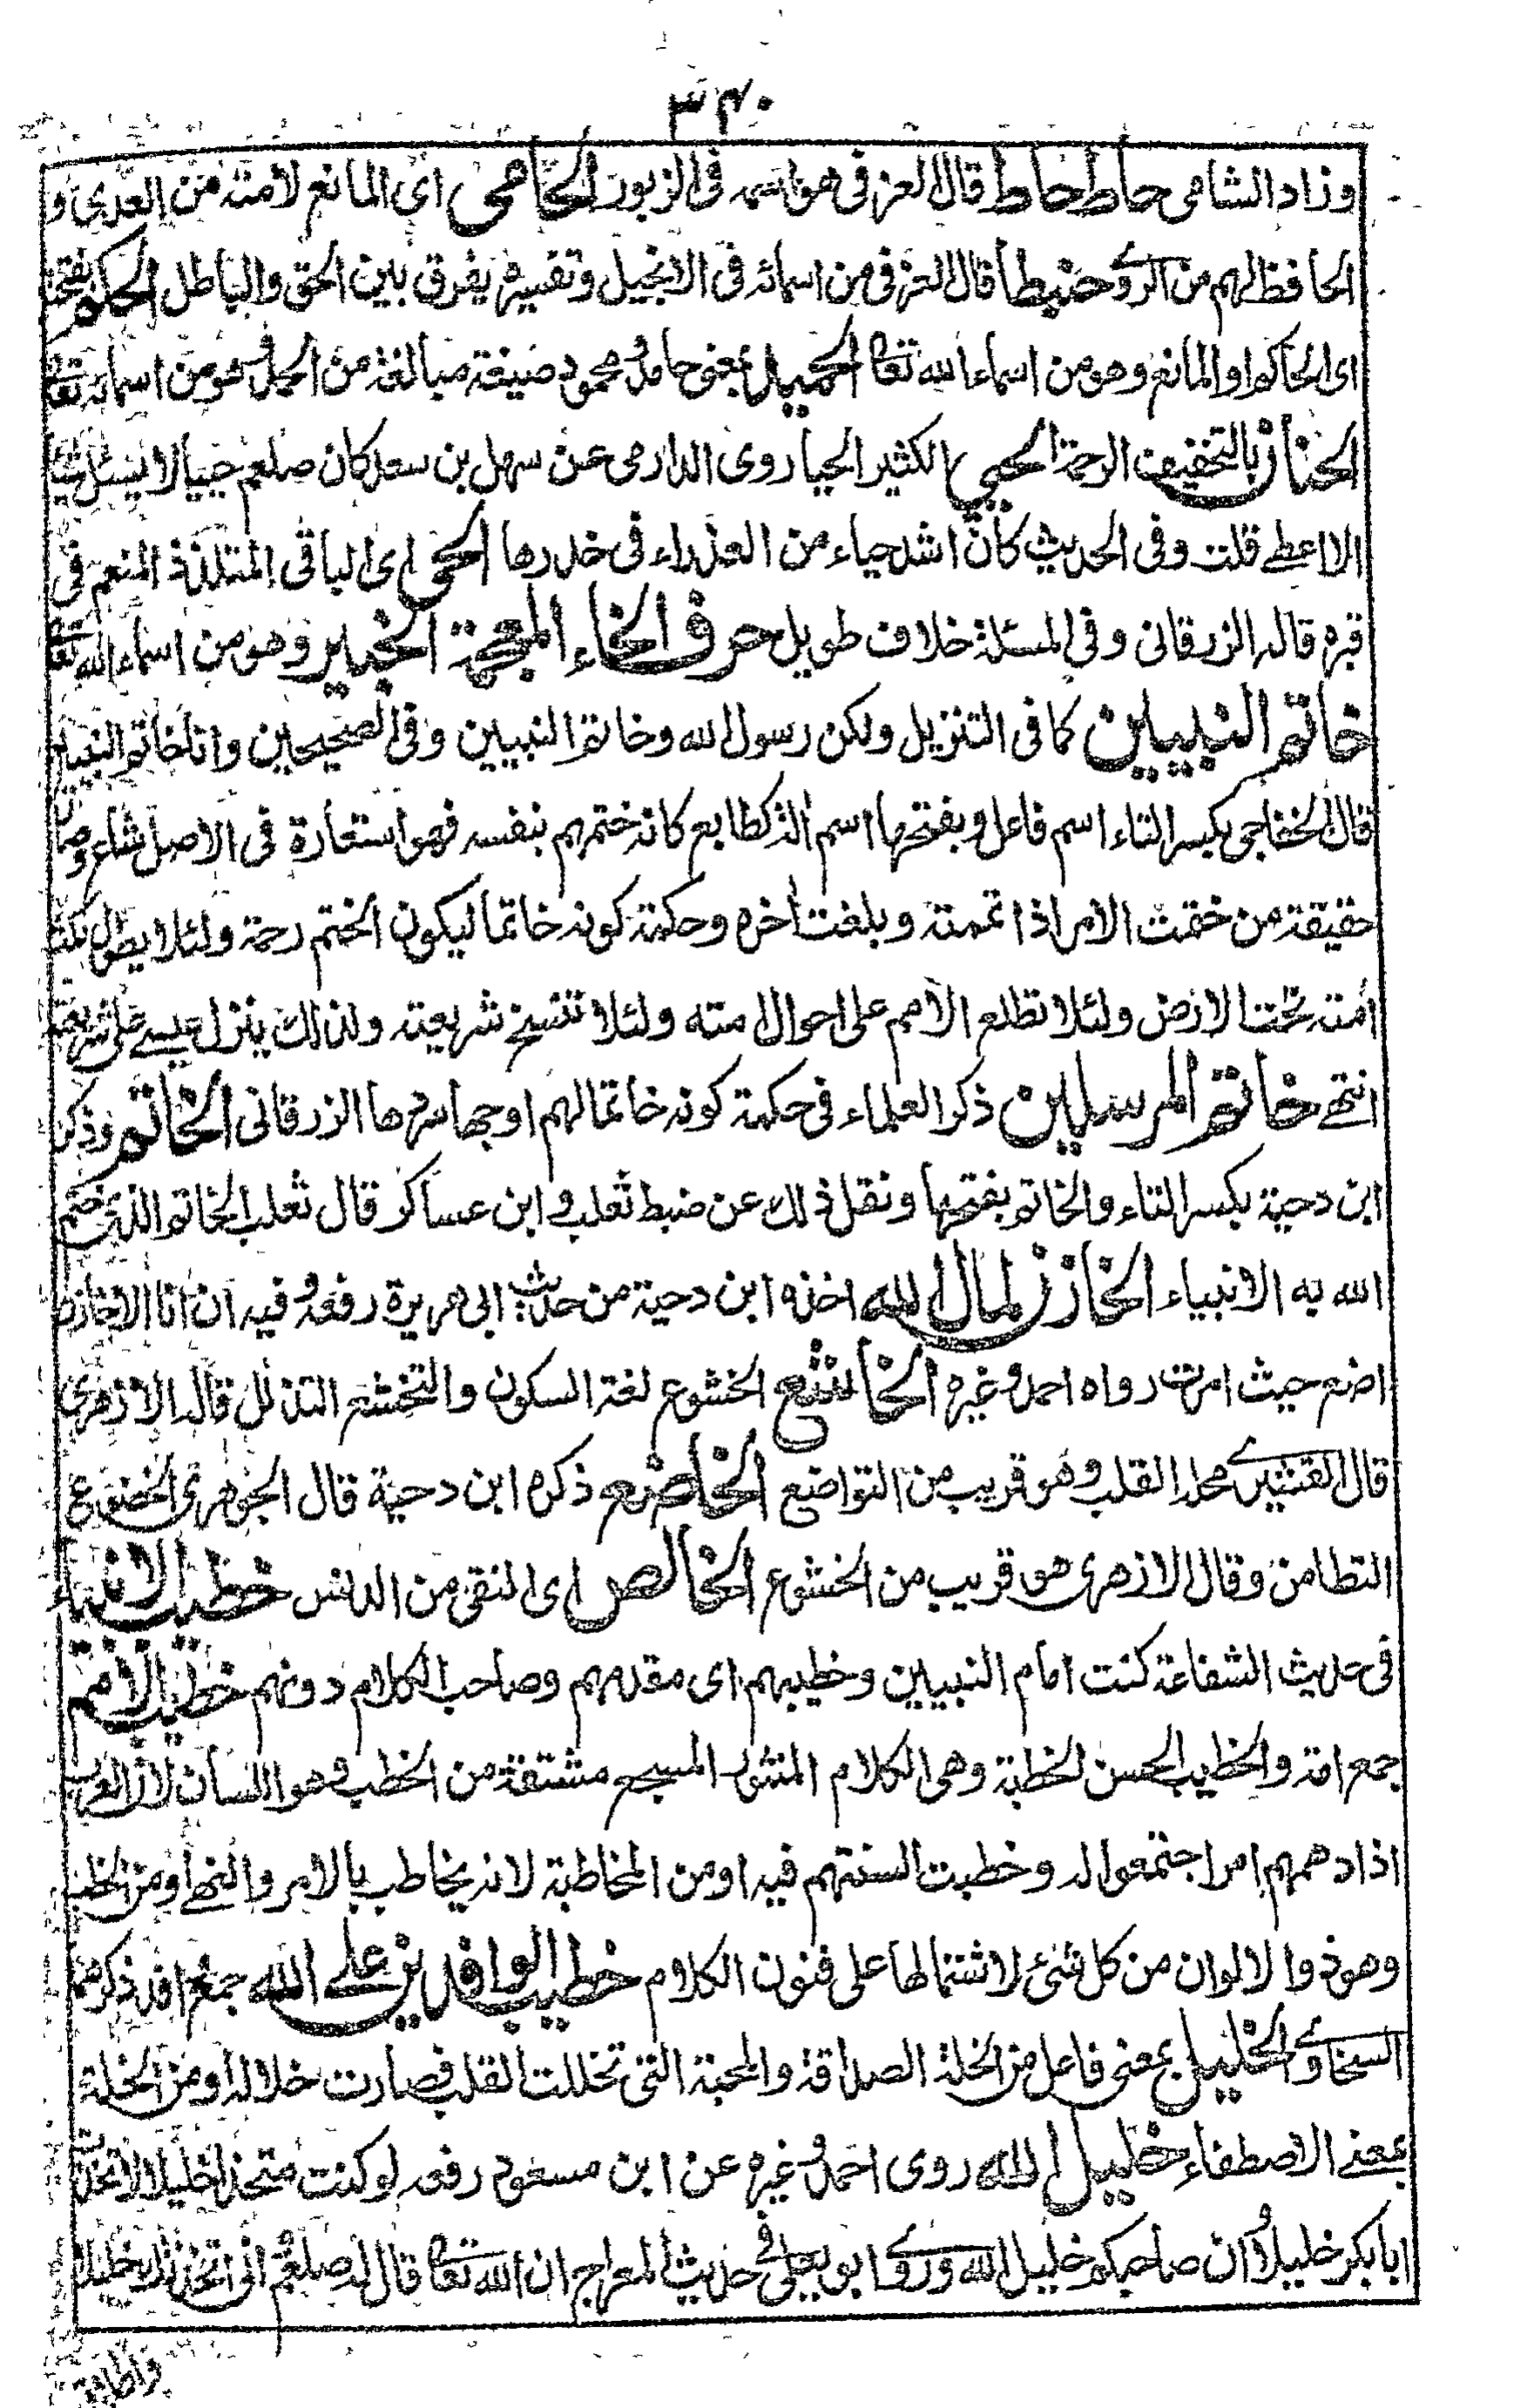 ۳۴۰
وزاد الشامی حاط حاط قال العزفی هو اسمہ فی الزبور الحامی ای المانع لامتہ من العدی و
الحافظ لهم من الردی وحنیطا قال العزفی من اسمائہ فی الانجیل وتفسیرہ یفرق بین الحق والباطل الحکم بفتحتین
ای الحاکم او المانع وهو من اسماء الله تعالی الحمید بمعنی حامد او محمود صیغة مبالغة من الحمد وهو من اسمائہ تعالی
الحنان بالتخفیف الرحمة الحیی الکثیر الحیا روی الدارمی عن سهل بن سعد کان صلعم حییا لا یسئل شیئا
الا اعطی قلت وفی الحدیث کان اشد حیاء من العذراء فی خدرها الحی ای الباقی المتلذذ المنعم فی
قبرہ قالہ الزرقانی وفی المسئلة خلاف طویل حرف الخاء المعجمة الخبیر وهو من اسماء الله تعالی
خاتم النبیین کما فی التنزیل ولکن رسول الله وخاتم النبیین وفی الصحیحین وانا خاتم النبیین
قال الخفاجی بکسر التاء اسم فاعل وبفتحها اسم الة کطابع کانہ ختمهم بنفسہ فهو استعارة فی الاصل شاع وصار
حقیقة من ختمت الامر اذا تممتہ وبلغت اخرہ وحکمة کونہ خاتما لیکون الختم رحمة ولئلا یطول مکث
امتہ تحت الارض ولئلا تطلع الامم علی احوال امتہ ولئلا تنسخ شریعتہ ولذلک ینزل عیسی علی شریعتہ
انتهی خاتم المرسلین ذکر العلماء فی حکمة کونہ خاتما لهم اوجها سردها الزرقانی الخاتم وذکر
ابن دحیة بکسر التاء والخاتم بفتحها ونقل ذلک عن ضبط ثعلب و ابن عساکر قال ثعلب الخاتم الذی ختم
الله به الانبیاء الخازن لمال الله اخذہ ابن دحیة من حدیث ابی هریرة رفعہ وفیہ ان انا الا خازن
اضع حیث امرت رواہ احمد وغیرہ الخاشع الخشوع لغة السکون والتخشع التذلل قالہ الازهری
قال القشیری محلہ القلب وهو قریب من التواضع الخاضع ذکرہ ابن دحیة قال الجوهری الخضوع
التطامن وقال الازهری هو قریب من الخشوع الخالص ای النقی من الدنس خطیب الانبیاء
فی حدیث الشفاعة کنت امام النبیین وخطیبهم ای مقدمهم وصاحب الکلام دونهم خطیب الامم
جمع امة والخطیب الحسن الخطبة وهی الکلام المنثور المسجع مشتقة من الخطب وهو اللسان لان العرب
اذا دهمهم امر اجتمعوا لہ وخطبت السنتهم فیہ او من المخاطبة لانہ یخاطب بالامر والنهی او من الخطب
وهو ذو الالوان من کل شئ لاشتمالها علی فنون الکلام خطیب الوافدین علی الله جمع وافد ذکرهما
السخاوی الخلیل بمعنی فاعل من الخلة الصداقة والمحبة التی تخللت القلب فصارت خلالہ او من الخلة
بمعنی الاصطفاء خلیل الله روی احمد وغیرہ عن ابن مسعود رفعہ لو کنت متخذا خلیلا لاتخذت
ابا بکر خلیلا وان صاحبکم خلیل الله وروی ابو یعلی فی حدیث المعراج ان الله تعالی قال لہ صلعم انی اتخذتک خلیلا